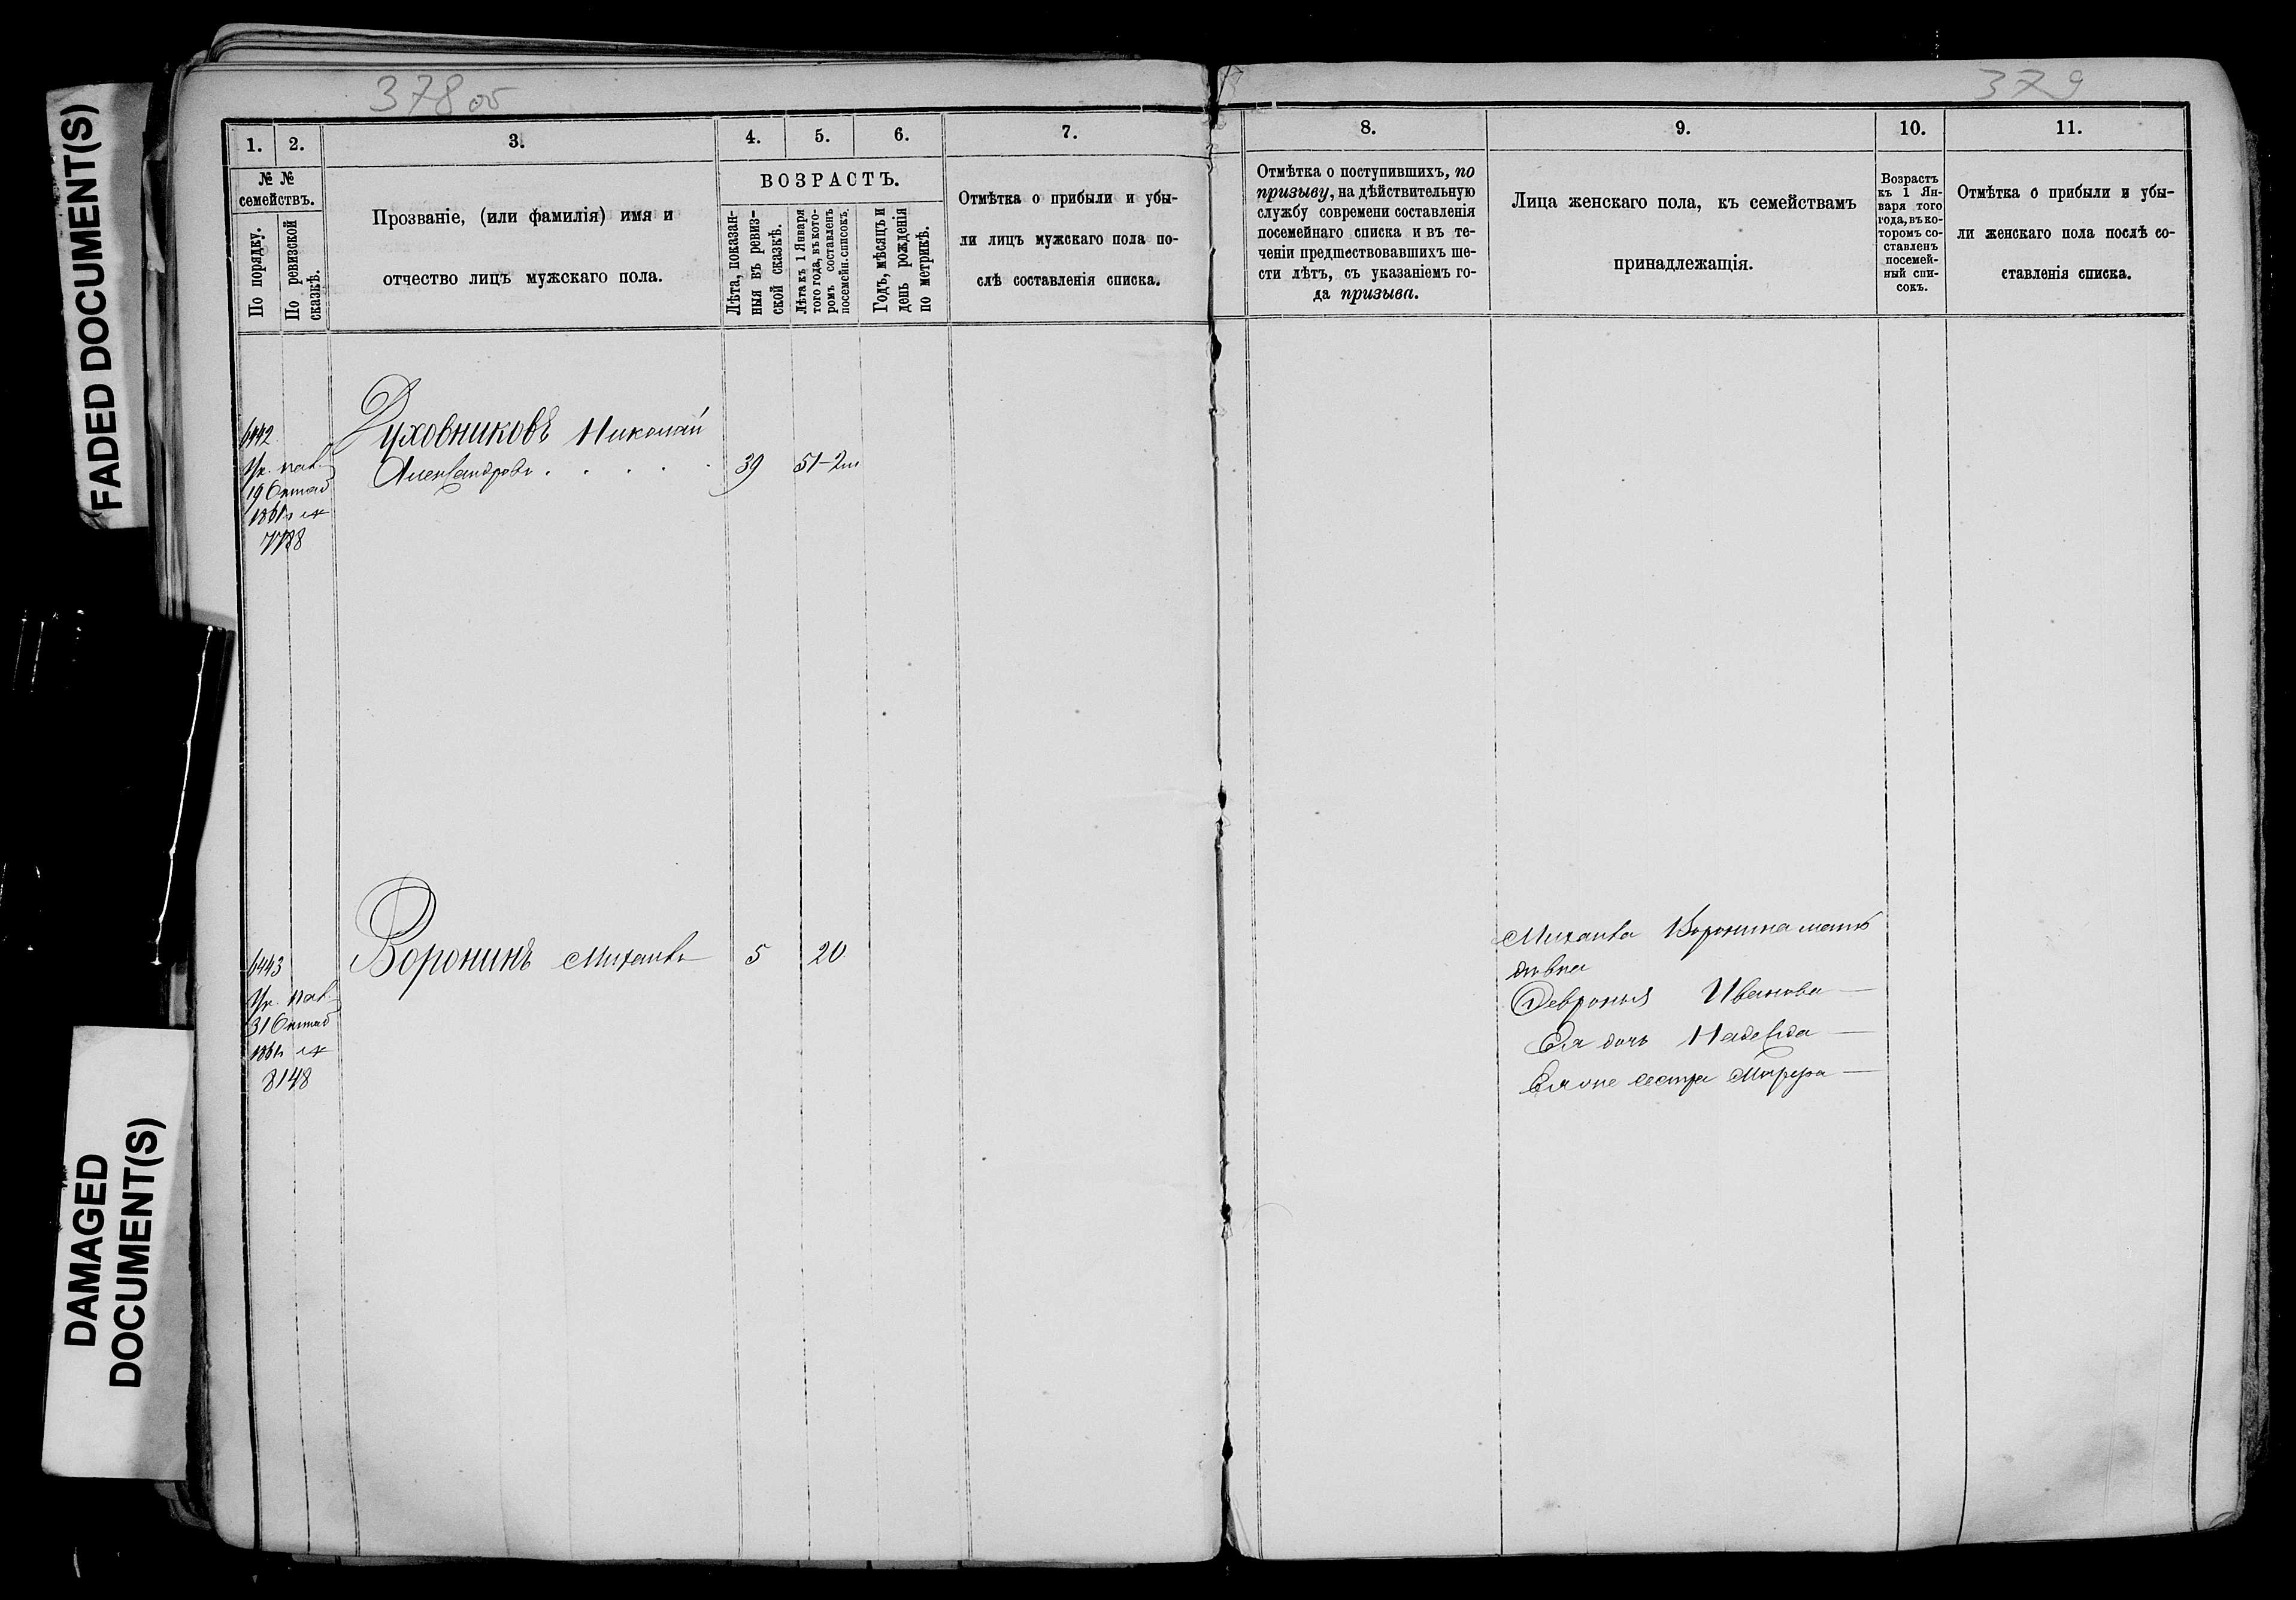 FADED DOCUMENT(S)
DAMAGED
DOCUMENT(S)
378 об
1.
2.
3.
4.
5.
6.
7.
№ №
семействъ.
По порядку.
По ревизской
сказкѣ.
Прозваніе, (или фамилія) имя и
отчество лицъ мужскаго пола.
ВОЗРАСТЪ.
Лѣта, показан-
ныя въ ревиз-
ской сказкѣ.
Лѣта къ 1 Января
того года, въ кото-
ромъ составленъ
посемейн. списокъ.
Годъ, мѣсяцъ и
день рожденія
по метрикѣ.
Отмѣтка о прибыли и убы-
ли лицъ мужскаго пола по-
слѣ составленія списка.
6442
19 Октяб
1861
7788
Духовниковъ Николай
Александровъ . . . . .
39
51-2
6443
31 Октяб
1861
8148
Воронинъ Михаилъ
5
20
379
8.
9.
10.
11.
Отмѣтка о поступившихъ, по
призыву, на дѣйствительную
службу современи составленія
посемейнаго списка и въ те-
ченіи предшествовавшихъ ше-
сти лѣтъ, съ указаніемъ го-
да призыва.
Лица женскаго пола, къ семействамъ
принадлежащія.
Возрастъ
къ 1 Ян-
варя того
года, въ ко-
торомъ со-
ставленъ
посемей-
ный спи-
сокъ.
Отмѣтка о прибыли и убы-
ли женскаго пола послѣ со-
ставленія списка.
Михаила Воронина мать
дѣвка
Февронья Иванова
Ея дочь Надежда
Ея же сестра